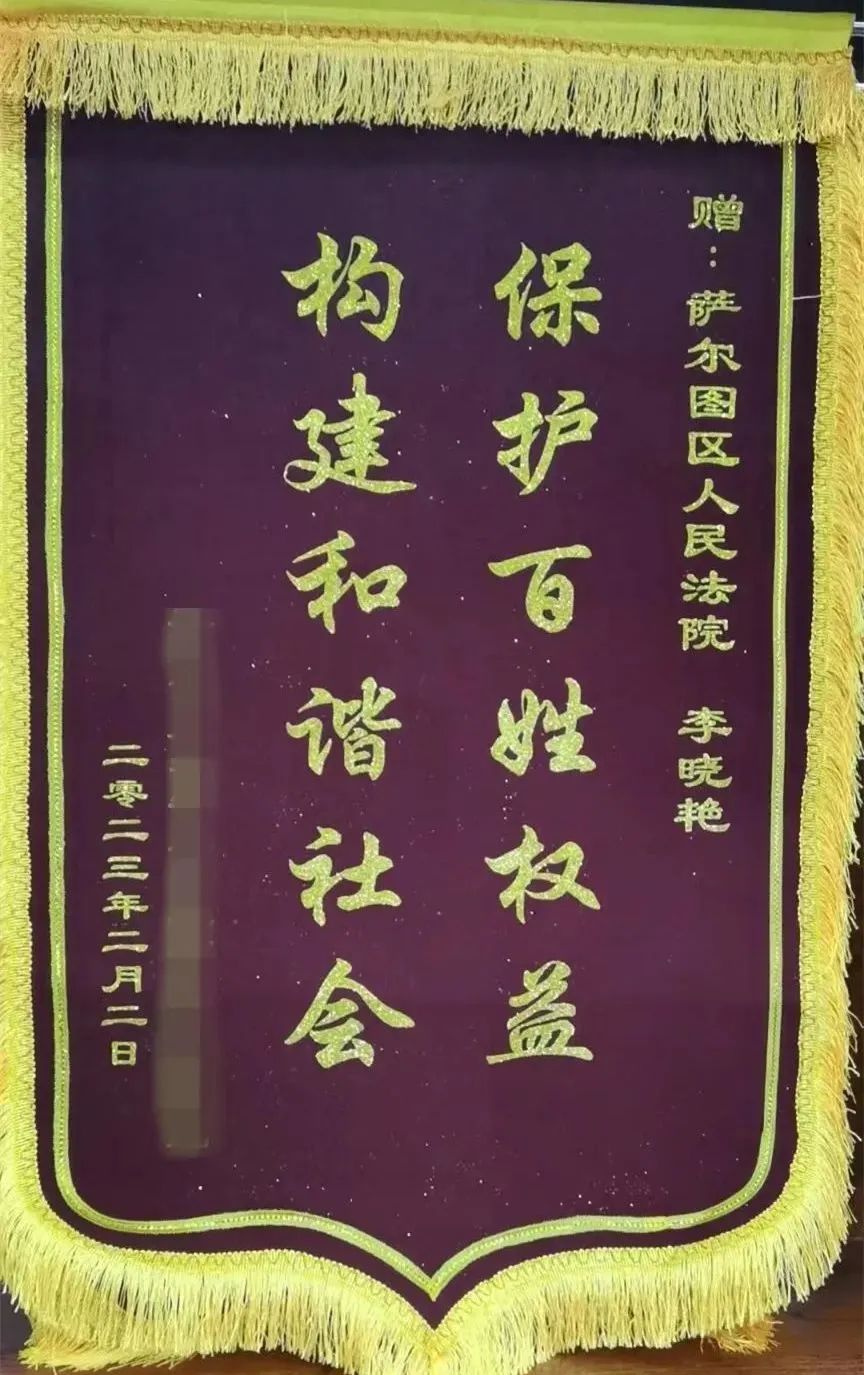 赠：萨尔图区人民法院 李晓艳
保护百姓权益
构建和谐社会
二零二三年二月二日